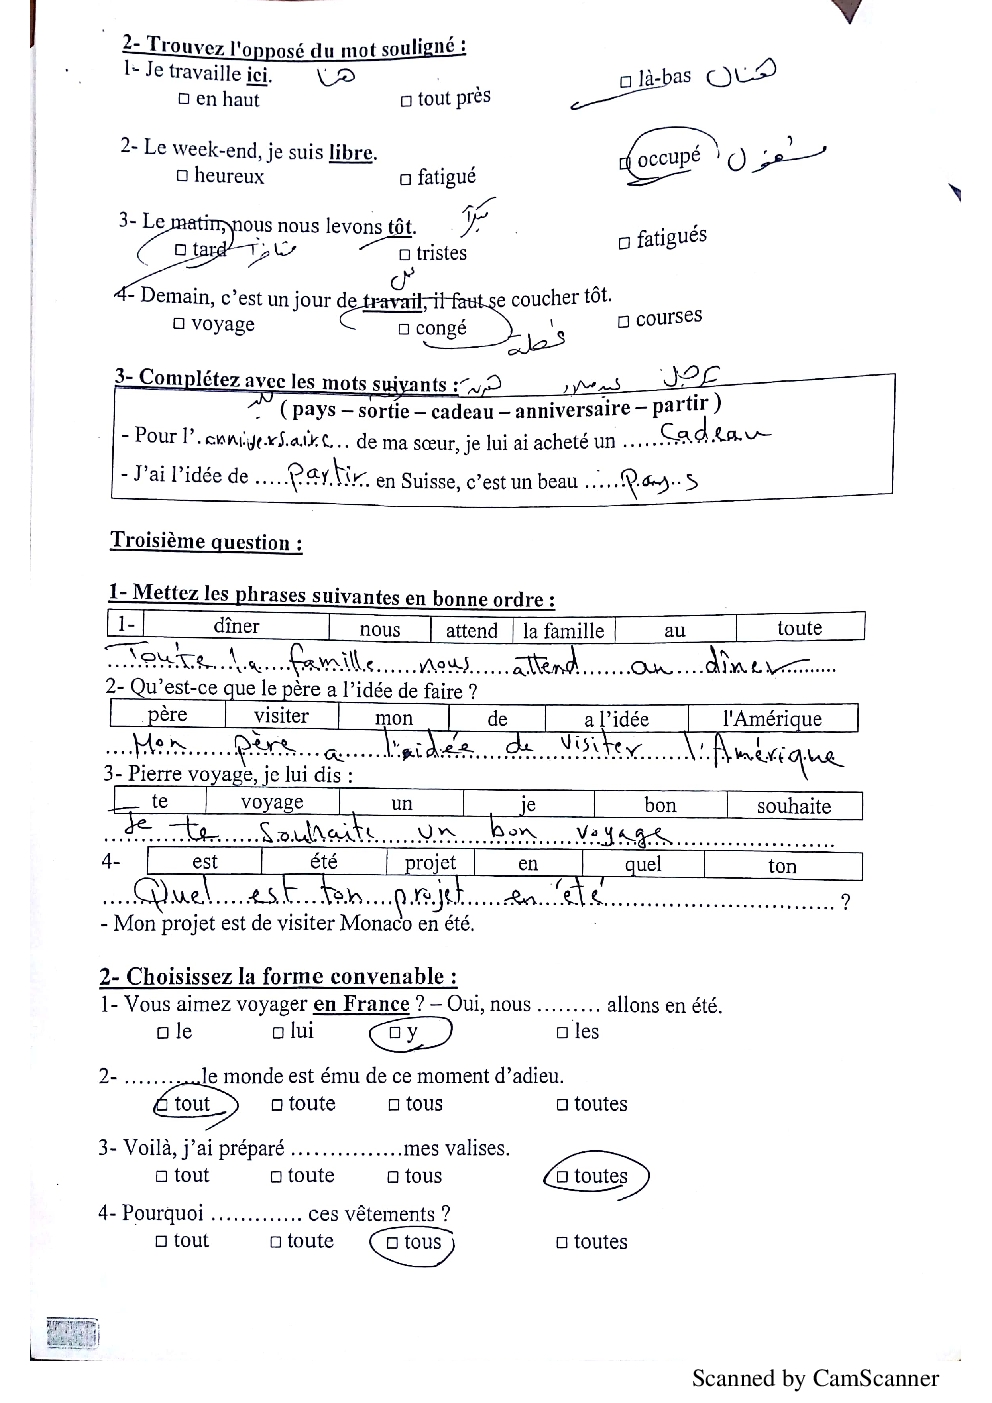 2- Trouvez l'opposé du mot souligné :
1- Je travaille ici. هنا
□ en haut □ tout près □ là-bas هناك
2- Le week-end, je suis libre.
□ heureux □ fatigué □ occupé مشغول
3- Le matin, nous nous levons tôt.
□ tard □ tristes □ fatigués
4- Demain, c'est un jour de travail, il faut se coucher tôt.
□ voyage □ congé □ courses
3- Complétez avec les mots suivants :
( pays – sortie – cadeau – anniversaire – partir )
- Pour l'.anniversaire... de ma sœur, je lui ai acheté un ......Cadeau
- J'ai l'idée de .....Partir. en Suisse, c'est un beau .....Pays
Troisième question :
1- Mettez les phrases suivantes en bonne ordre :
1- dîner nous attend la famille au toute
Toute la famille nous attend au dîner
2- Qu'est-ce que le père a l'idée de faire ?
père visiter mon de a l'idée l'Amérique
Mon père a l'aidée de visiter l'Amérique
3- Pierre voyage, je lui dis :
te voyage un je bon souhaite
Je te souhaite un bon voyage
4- est été projet en quel ton
Quel est ton projet en été ?
- Mon projet est de visiter Monaco en été.
2- Choisissez la forme convenable :
1- Vous aimez voyager en France ? – Oui, nous ......... allons en été.
□ le □ lui □ y □ les
2- ...........le monde est ému de ce moment d'adieu.
□ tout □ toute □ tous □ toutes
3- Voilà, j'ai préparé ................mes valises.
□ tout □ toute □ tous □ toutes
4- Pourquoi ............. ces vêtements ?
□ tout □ toute □ tous □ toutes
Scanned by CamScanner